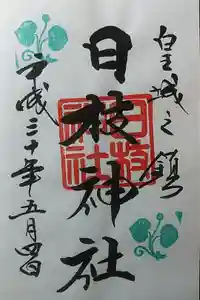 皇城之鎮
日枝神社
日枝神社
平成三十年五月四日